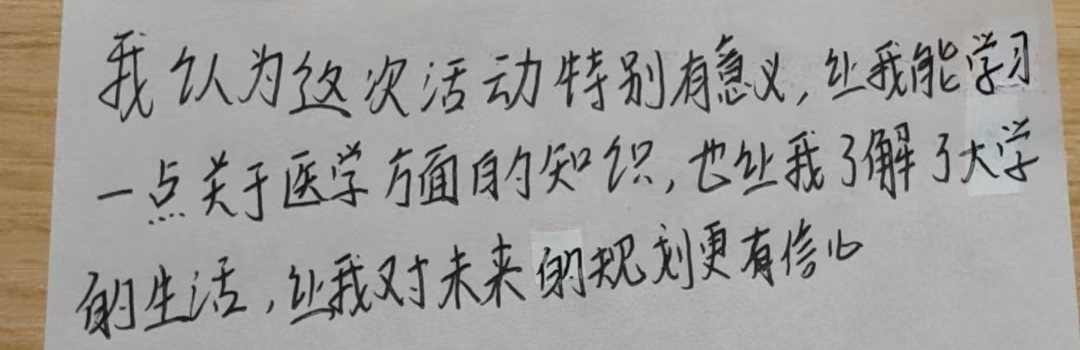 我认为这次活动特别有意义，让我能学习
一点关于医学方面的知识，也让我了解了大学
的生活，让我对未来的规划更有信心